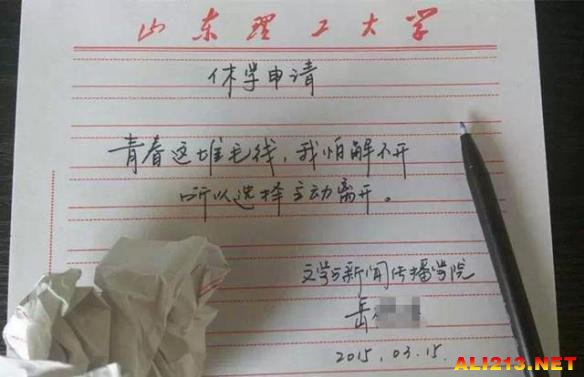 山东理工大学
休学申请
青春这堆毛线，我怕解不开
所以选择主动离开。
文学与新闻传播学院
岳
2015.03.15.
ALI213.NET